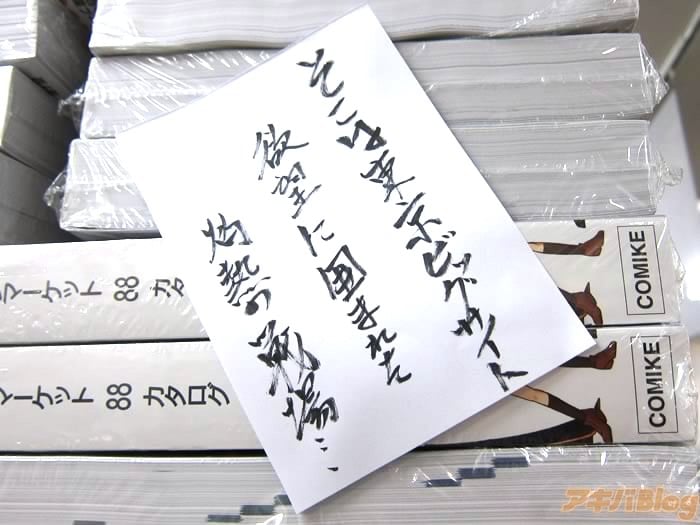 そこは東京ビッグサイト
欲望に囲まれた
灼熱の戦場…
マーケット 88 カタ
COMIKE
マーケット 88 カタログ
COMIKE
アキバBlog